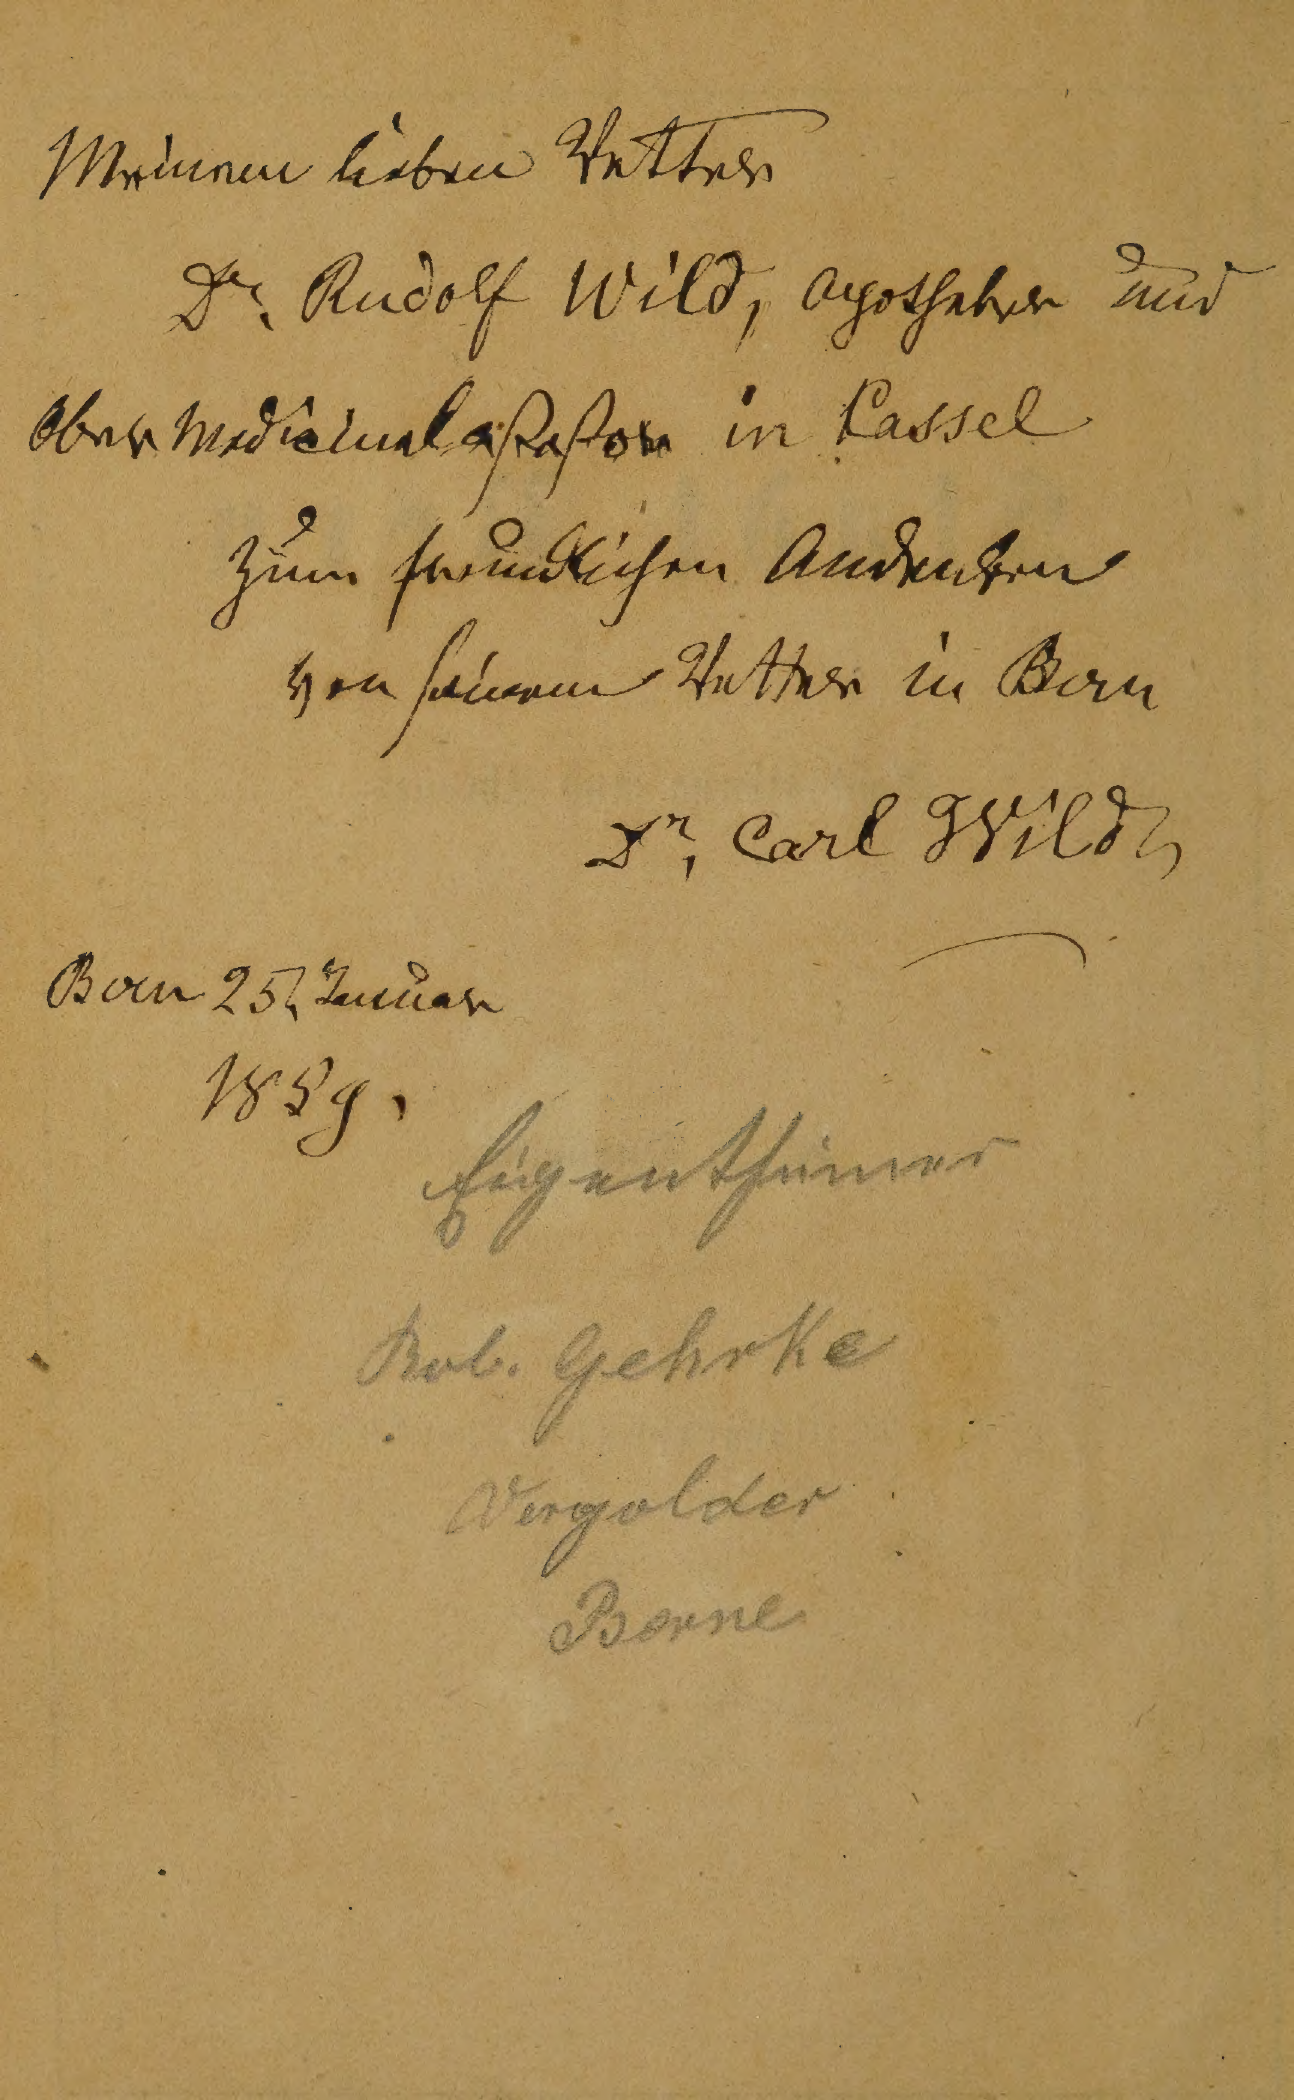 Meinem lieben Vetter
Dr. Rudolf Wild, Apotheker und
Ober Medicinalassessor in Cassel
zum freundlichen Andenken
von seinem Vetter in Bern
Dr. Carl Wild,
Bern 25, Januar
1859.
Eigenthümer
Rob. Gehrke
Vergolder
Berne